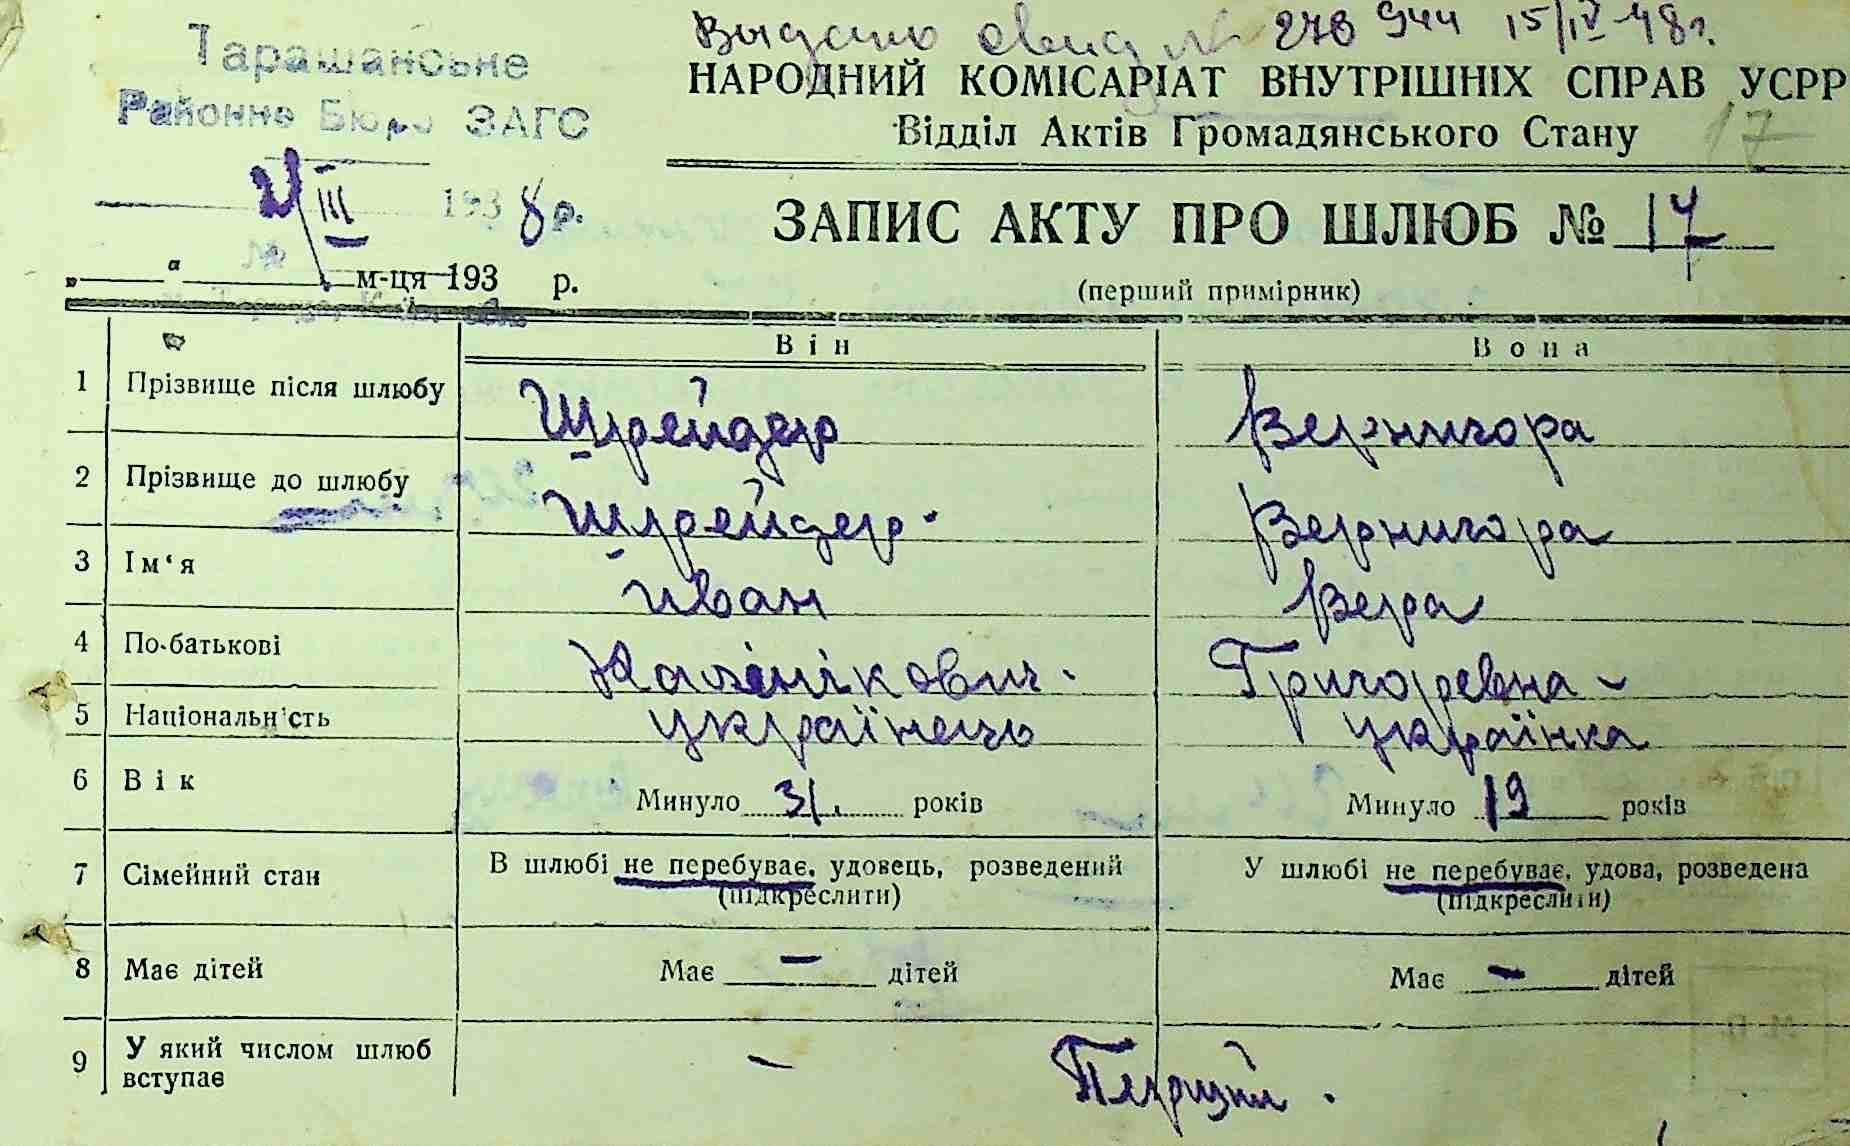 Выдано свид № 278944 15/IV-48г.
Тарашанське
Районне Бюро ЗАГС
НАРОДНИЙ КОМІСАРІАТ ВНУТРІШНІХ СПРАВ УСРР
Відділ Актів Громадянського Стану
17
III 1938 р.
№
ЗАПИС АКТУ ПРО ШЛЮБ № 17
„ “ м-ця 193 р.
(перший примірник)
Він Вона
1 Прізвище після шлюбу Шрейдер Вернигора
2 Прізвище до шлюбу Шрейдер. Вернигора
3 Ім‘я Иван Вера
4 По-батькові Калінікович. Григоревна -
5 Національність українець українка
6 Вік Минуло 31. років Минуло 19 років
7 Сімейний стан В шлюбі не перебуває, удовець, розведений У шлюбі не перебуває, удова, розведена
(підкреслити) (підкреслити)
8 Має дітей Має — дітей Має — дітей
9 У який числом шлюб вступає — Перший.